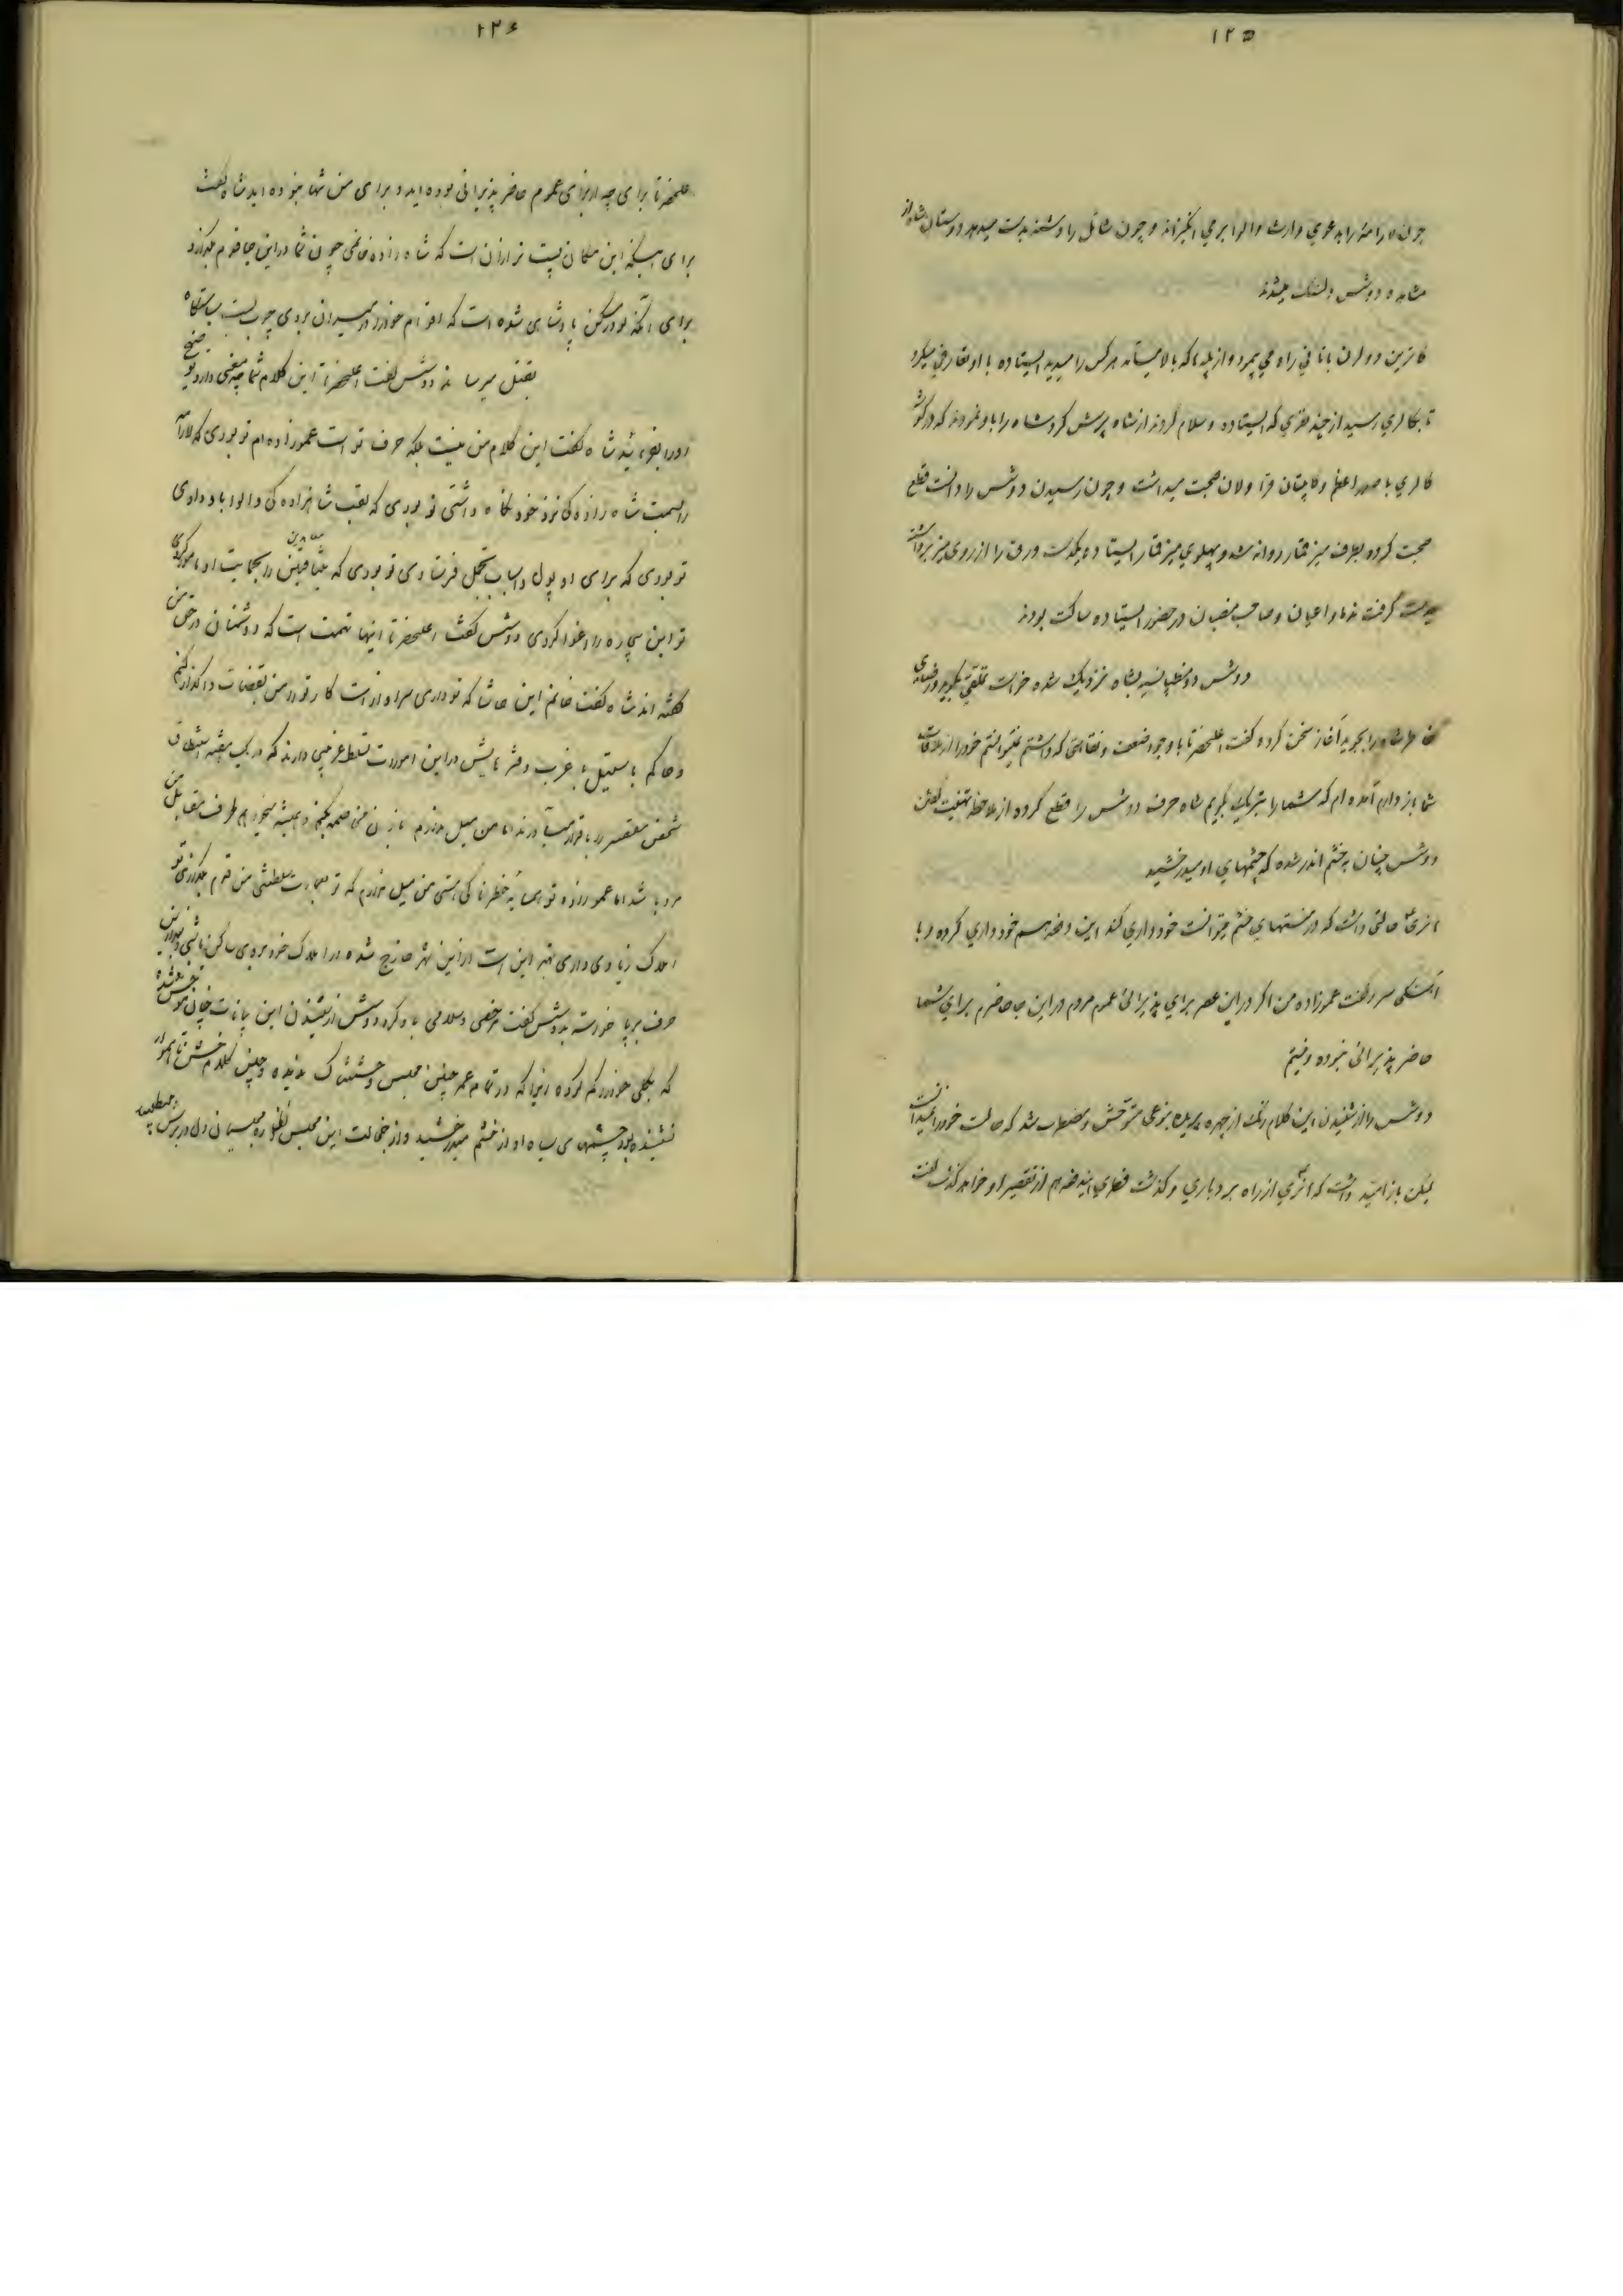 ۱۲۵
چون لارامنه را بدعوي وارث والوا برمي انگیزاند و چون شائل را دشنه بدست میدهد دوستان شاه از
مشاهده دوشس دلتنگ میشدند
کاترین دولرن بانانی راه می پیمود و از پله ها که بالا میآمد هر کس را میدید ایستاده با او تعارفی میکرد
تا بکالري رسید از چند نفري که ایستاده و سلام کردند از شاه پرسش کرد شاه را باو نمودند که در گوشه
کالري با صدر اعظم و کاپیتان قراولان صحبت میداشت و چون رسیدن دوشس را دانست قطع
صحبت کرده بطرف میز قمار روانه شد و پهلوي میز قمار ایستاده یکدست ورق را از روی میز برداشته
بدست گرفت ندما و اعیان و صاحب منصبان در حضور ایستاده ساکت بودند
دوشس دومنطپانسیه بشاه نزدیک شده خواست تملقی بگوید و رضای
خاطر شاه را بجوید آغاز سخن کرده گفت اعلیحضرتا با وجود ضعف و نقاهتی که داشتم نتوانستم خود را از ملاقات
شما باز دارم آمده ام که شما را تبریک بگویم شاه حرف دوشس را قطع کرده از ملاحظه تهنیت گفتن
دوشس چنان بخشم اندر شده که چشمهاي او میدرخشید
هانري حالتی داشت که در منتهاي خشم میتوانست خود داري کند این دفعه هم خود داري کرده و با
آهستگی سرد گفت عموزاده من اگر در این عصر براي پذیرائی عموم مردم در این جا حاضرم براي شما
حاضر پذیرائی نبوده و نیستم
دوشس را از شنیدن این کلام رنگ از چهره پریده بنوعی متوحش و مضطرب شد که حالت خود را نمیدانست
لیکن باز امید داشت که هانري از راه بردباري و گذشت فطري ایندفعه هم از تقصیر او خواهد گذشت گفت
۱۲۶
اعلیحضرتا برای چه از برای عموم حاضر پذیرائی بوده اید و برای من تنها نبوده اید شاه گفت
برای اینکه این مکان پست تر از آن است که شاه زاده خانمی چون شما در این جا قدم بگذارد
برای آنکه لوور مسکن پادشاهی شده است که اقوام خود را در میدان بروی چوب بست سیاستگاه
بقتل میرساند دوشس گفت اعلیحضرتا این کلام شما چه معنی دارد توضیح
او را بفرمائید شاه گفت این کلام من نیست بلکه حرف تو است عموزاده ام تو بودی که لارامه
را بسمت شاه زاده گی نزد خود نگاه داشتی تو بودی که لقب شاهزاده گی والوا باو دادی
تو بودی که برای او پول و اسباب تجمل فرستادی تو بودی که منافقین را بحمایت او مامور کردی
تو این بیچاره را اغوا کردی دوشس گفت اعلیحضرتا اینها تهمت است که دشمنان در حق من
گفته اند شاه گفت خانم این حاشا که تو داری سزاوار است کار تو را من بقضات واگذار کنم
و حاکم باستیل، غرب و دفترهایش در این امورات تسلط غریبی دارند که در یک دقیقه استنطاق
شخص مقصر را باقرار میآورند اما من میل ندارم با زن من خصمه بکنم و همیشه میخواهم طرف مقابل من
مرد باشد اما عموزاده تو همسایه خطرناکی هستی من میل ندارم که تو بعمارت سلطنتی من قدم بگذاری تو
املاک زیادی داری بهتر این است از این شهر خارج شده در املاک خود بروی ساکن باشی و بعد از این
حرف برپا خواسته بدوشس گفت مرخصی و سلامی باو کرد دوشس از شنیدن این بیانات چنان متوحش شده
که بکلی خود را گم کرده زیرا که در تمام عمر چنین مجلس وحشتناک ندیده و چنین کلام خشن ناهموار
نشنیده بود چشمهای سیاه او از خشم میدرخشید و از خجالت این مجلس